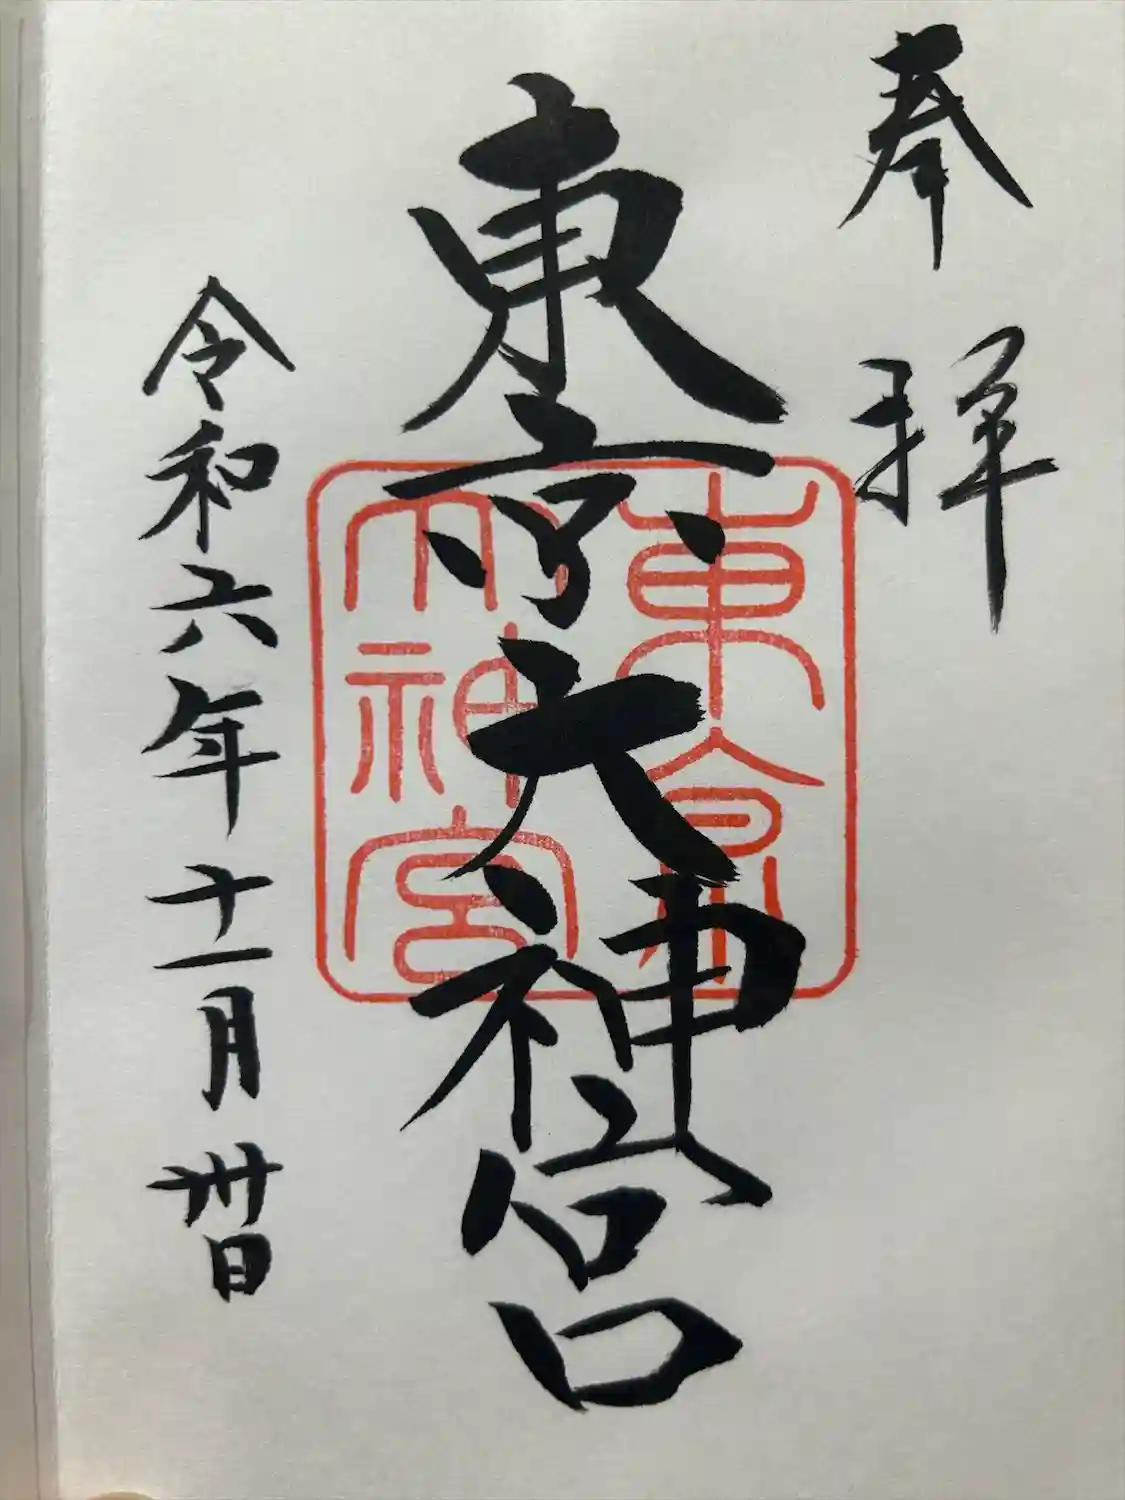 奉拝
東京大神宮
東京
大神宮
令和六年十一月卅日